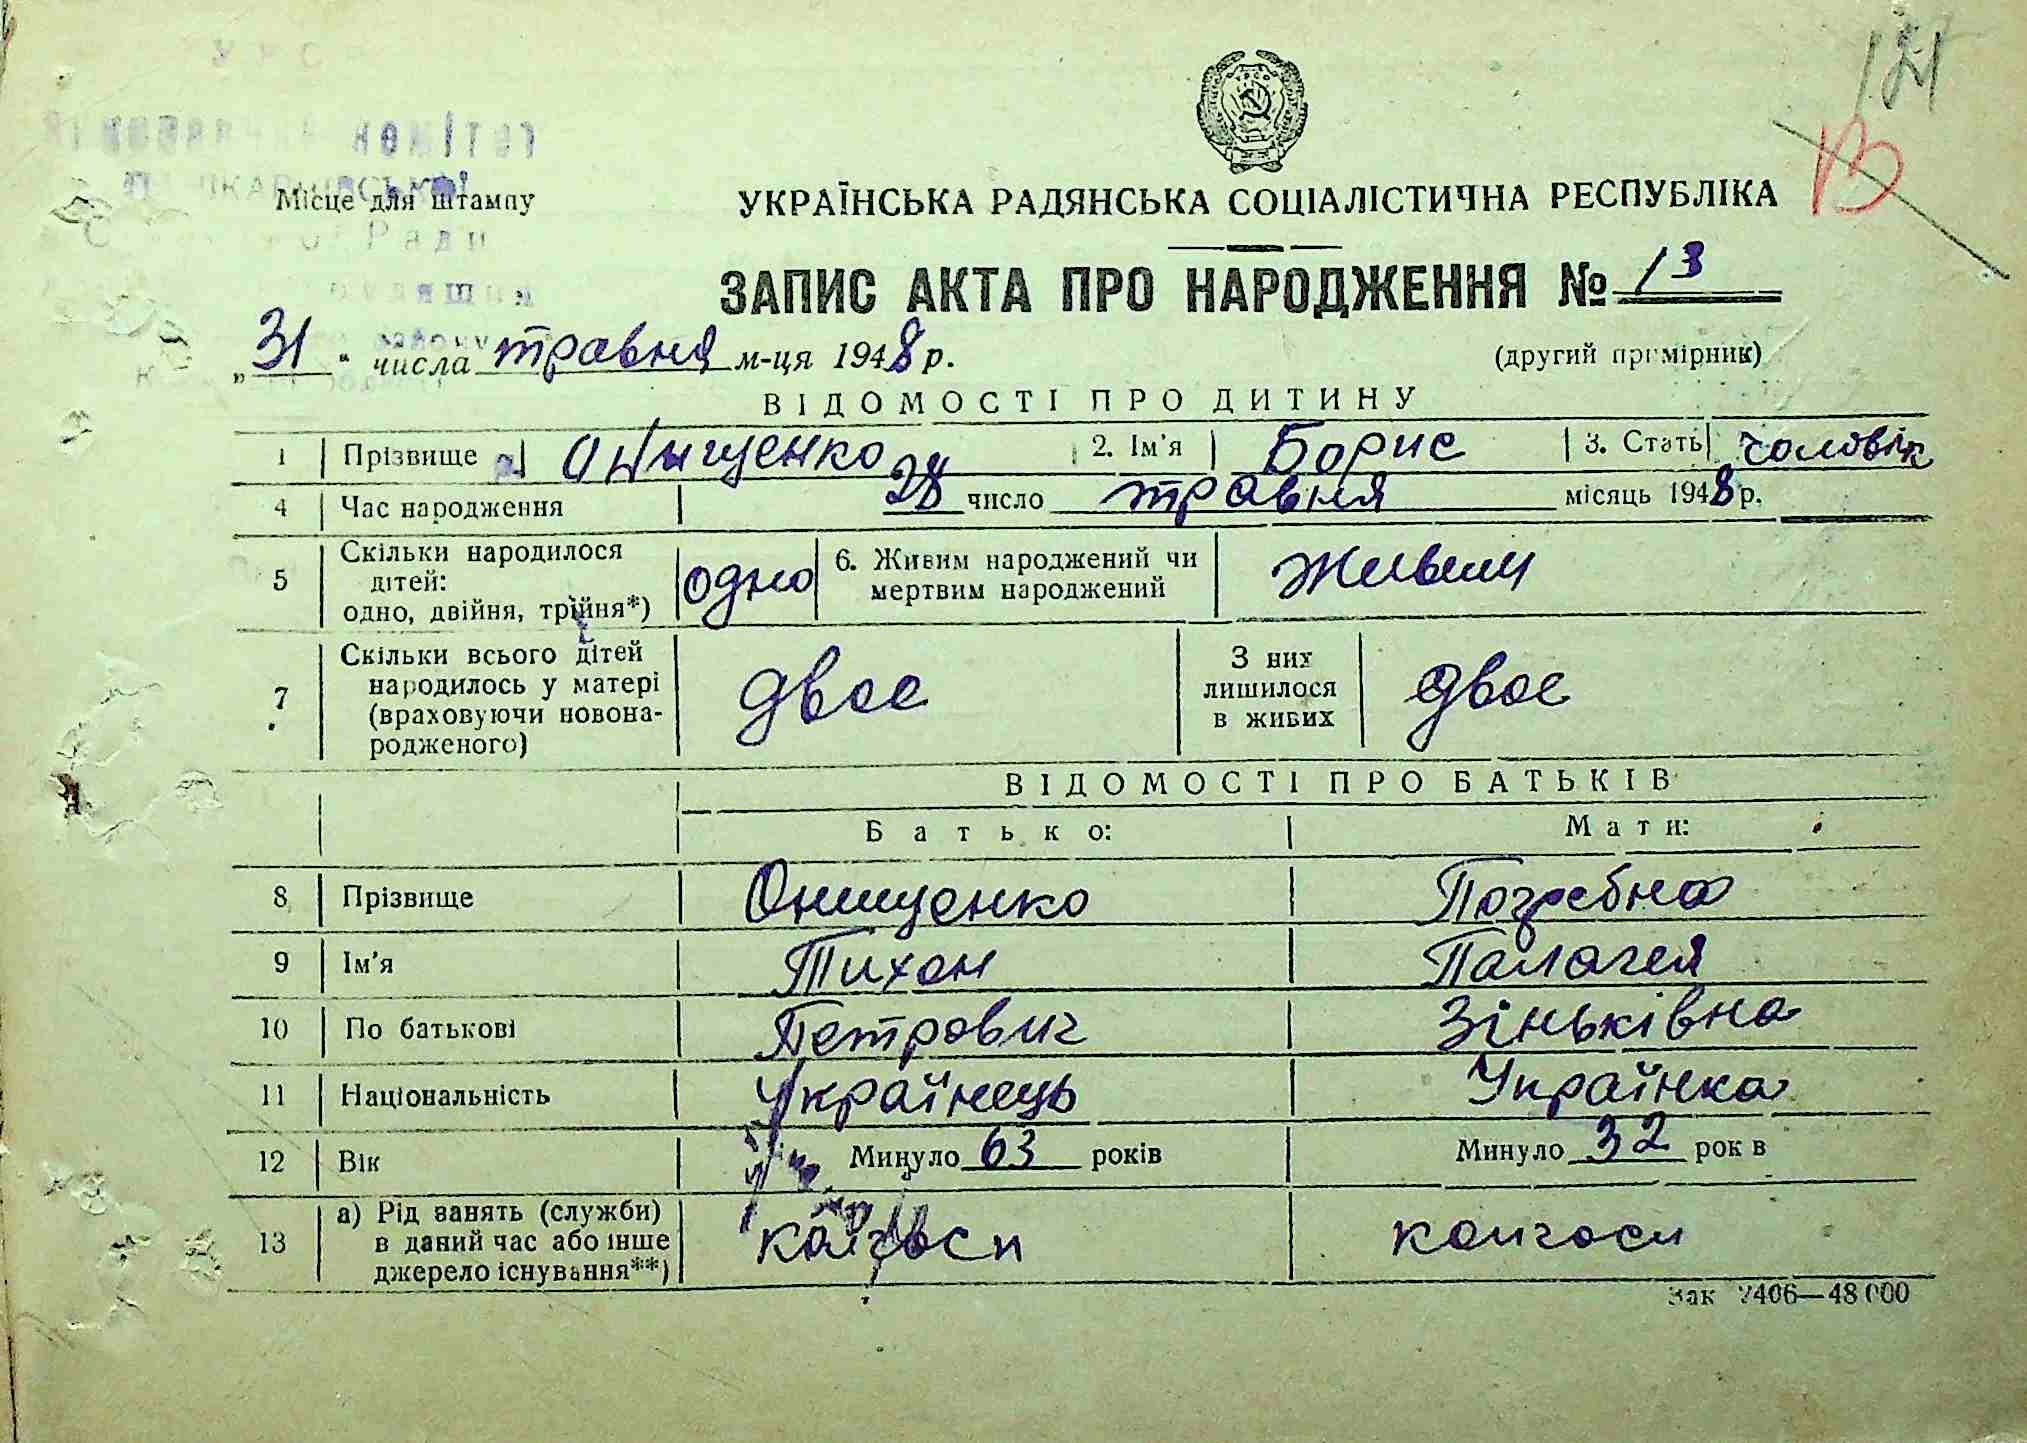 121
13
Місце для штампу
УКРАЇНСЬКА РАДЯНСЬКА СОЦІАЛІСТИЧНА РЕСПУБЛІКА
ЗАПИС АКТА ПРО НАРОДЖЕННЯ № 13
„31“ числа травня м-ця 1948 р.
(другий примірник)
ВІДОМОСТІ ПРО ДИТИНУ
1 Прізвище Онищенко 2. Ім'я Борис 3. Стать чоловік
4 Час народження 28 число травня місяць 1948 р.
5 Скільки народилося дітей: одно, двійня, трійня*) одно 6. Живим народжений чи мертвим народжений живим
7 Скільки всього дітей народилось у матері (враховуючи новонародженого) двое З них лишилося в живих двое
ВІДОМОСТІ ПРО БАТЬКІВ
Батько: Мати:
8 Прізвище Онищенко Погребна
9 Ім'я Тихон Палагея
10 По батькові Петрович Зіньківна
11 Національність Українець Українка
12 Вік Минуло 63 років Минуло 32 років
13 а) Рід занять (служби) в даний час або інше джерело існування**) колгосп колгосп
Зак 2406—48000